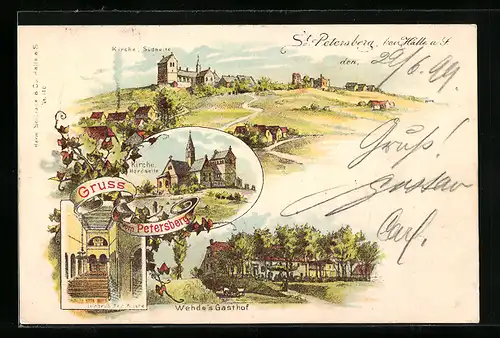 Kirche, Südseite
St. Petersberg, bei Halle a. S.
den, 29/6. 99.
Kirche,
Nordseite
Gruss
vom Petersberg
Gruss!
Gustav
Carl.
Wehde's Gasthof